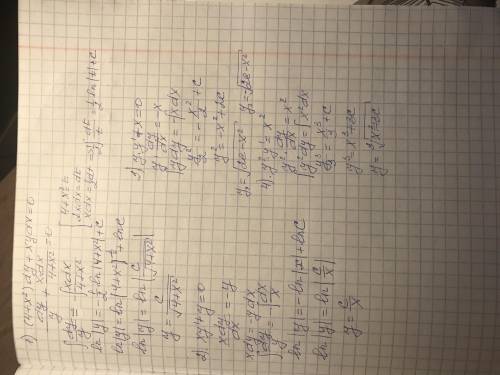 1) (4+x²)dy+xydx=0
dy/y + xdx/(4+x²) = 0
∫dy/y = -∫xdx/(4+x²)
4+x²=t
2xdx=dt
xdx=½dt
= ½∫dt/t = ½ln|t|+C
ln|y| = -½ln|4+x²|+C
ln|y| = ln|4+x²|^(-½)+lnC
ln|y| = ln|C/√(4+x²)|
y = C/√(4+x²)
2) xy'+y=0
xdy/dx = -y
xdy = -ydx
∫dy/y = -∫dx/x
ln|y| = -ln|x|+lnC
ln|y| = ln|C/x|
y = C/x
3) y·y'+x=0
y·dy/dx = -x
∫ydy = -∫xdx
y²/2 = -x²/2+C
y² = -x²+2C
y₁=√(2C-x²) y₂=-√(2C-x²)
4) y²·y'=x²
y²·dy/dx = x²
∫y²dy = ∫x²dx
y³/3 = x³/3+C
y³ = x³+3C
y = ³√(x³+3C)